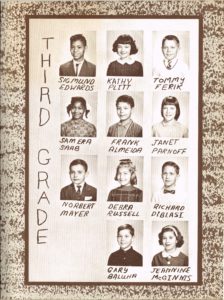 THIRD GRADE
SIGMUND KATHY TOMMY
EDWARDS PLITT FERIK
SAMERA FRANK JANET
SAAB ALMEIDA PARHOFF
NORBERT DEBRA RICHARD
MAYER RUSSELL DIBLASI
GARY JEANNINE
BALUHA McGINNIS